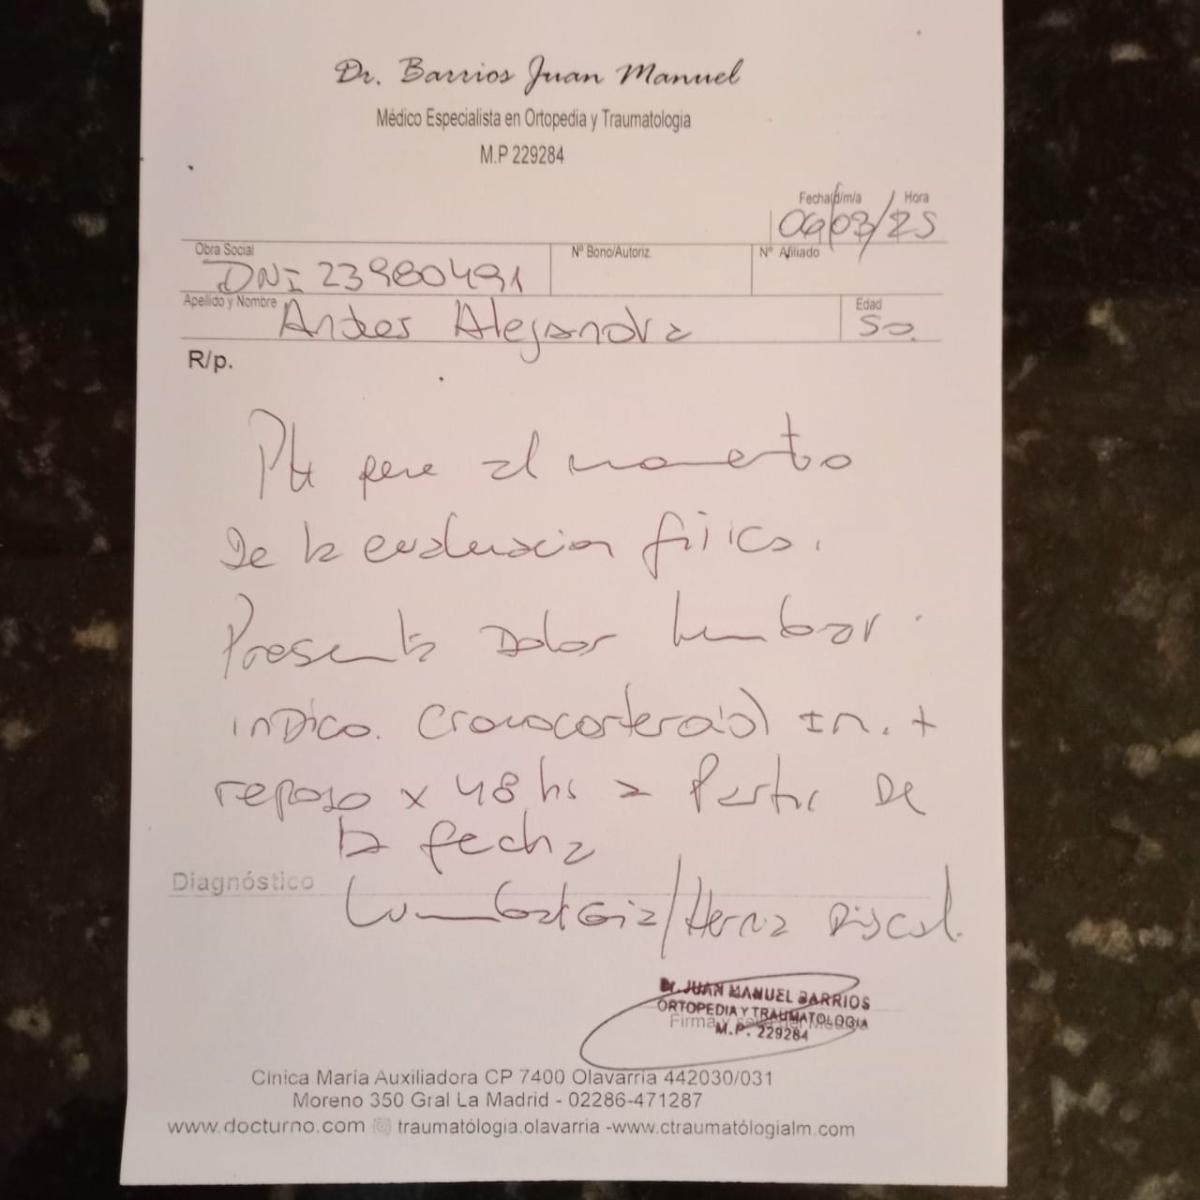 Dr. Barrios Juan Manuel
Médico Especialista en Ortopedia y Traumatologia
M.P 229284
Fecha d/m/a Hora
04/03/25
Obra Social DNI 23980491 Nº Bono/Autoriz. Nº Afiliado
Apellido y Nombre Andres Alejandra Edad 50.
R/p.
Pte que al momento
De la evaluacion fisica.
Presenta Dolor lumbar.
indico. Cronocorteroid Im. +
reposo x 48 hs a Partir De
la fecha
Diagnóstico
Lumbalgia/Hernia Discal.
Dr. JUAN MANUEL BARRIOS
ORTOPEDIA Y TRAUMATOLOGIA
Firma y
M.P. 229284
Clnica María Auxiliadora CP 7400 Olavarria 442030/031
Moreno 350 Gral La Madrid - 02286-471287
www.docturno.com traumatólogia.olavarria -www.ctraumatólogialm.com